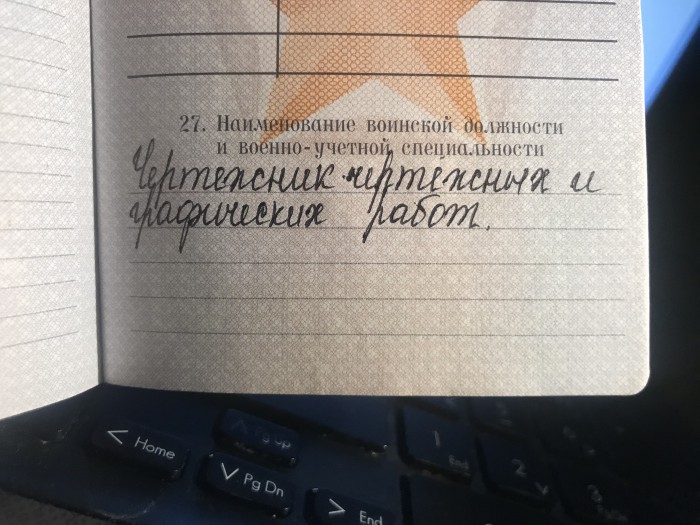 27. Наименование воинской должности
и военно-учетной специальности
Чертежник чертёжных и
графических работ.
Home
Pg Up
Pg Dn
End
1
End
2
3